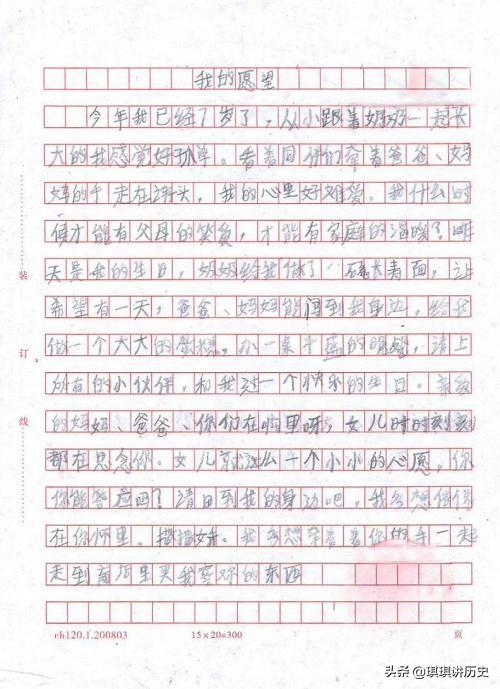 我的愿望
今年我已经7岁了,从小跟着奶奶一起长
大的我感觉好孤单。看着同伴们牵着爸爸、妈
妈的手走在街头,我的心里好难受。我什么时
候才能有父母的笑,才能有家庭的温暖?昨
天是我的生日,奶奶给我做了一碗长寿面,
希望有一天,爸爸、妈妈能回到我身边,给我
做一个大大的蛋糕,办一桌丰盛的晚餐,请上
所有的小伙伴,和我过一个快乐的生日。亲
的妈妈、爸爸、你们在哪里呀,女儿时时刻刻
都在思念你。女儿就这么一个小小的心愿,你
你能答应吗?请回到我的身边吧,我多想依偎
在你怀里。我多想牵着着你的手一起
走到商场里买我喜欢的东西
装
订
线
ch120.1.200803
15×20=300
页
头条@琪琪讲历史